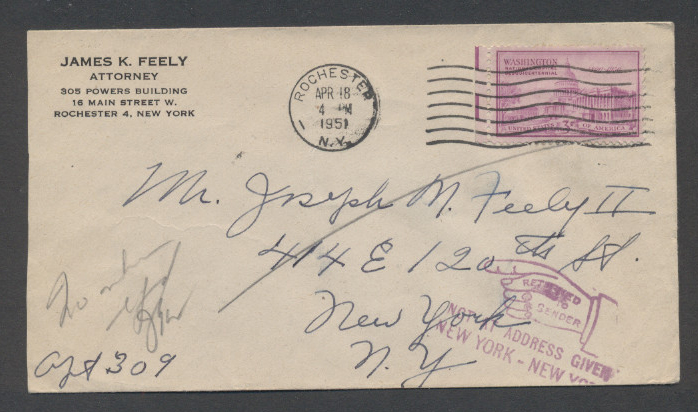 JAMES K. FEELY
ATTORNEY
305 POWERS BUILDING
16 MAIN STREET W.
ROCHESTER 4, NEW YORK
ROCHESTER
APR 18
4 PM
1951
N.Y.
WASHINGTON
NATIONAL CAPITAL
SESQUICENTENNIAL
UNITED STATES 3¢ OF AMERICA
Mr. Joseph M. Feely II
414 E 120th St.
New York
N.Y.
No
Apt 309
RETURNED
TO
SENDER
NOT AT ADDRESS GIVEN
NEW YORK - NEW YO